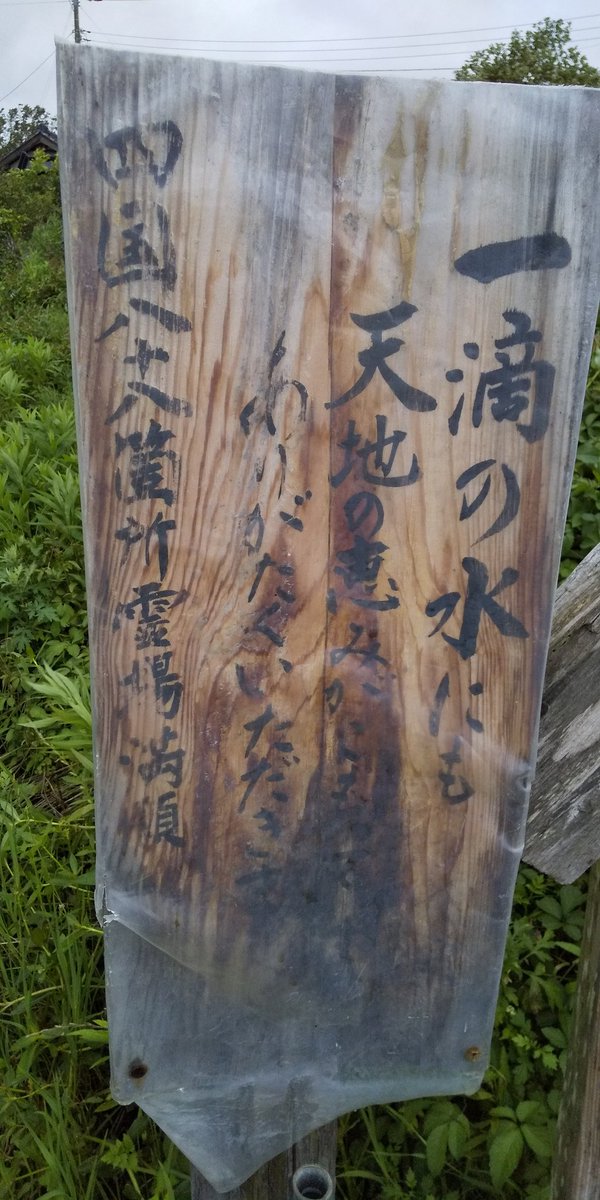 一滴の水にも
天地の恵みがこもって
ありがたくいただきます
四国八十八箇所霊場満願